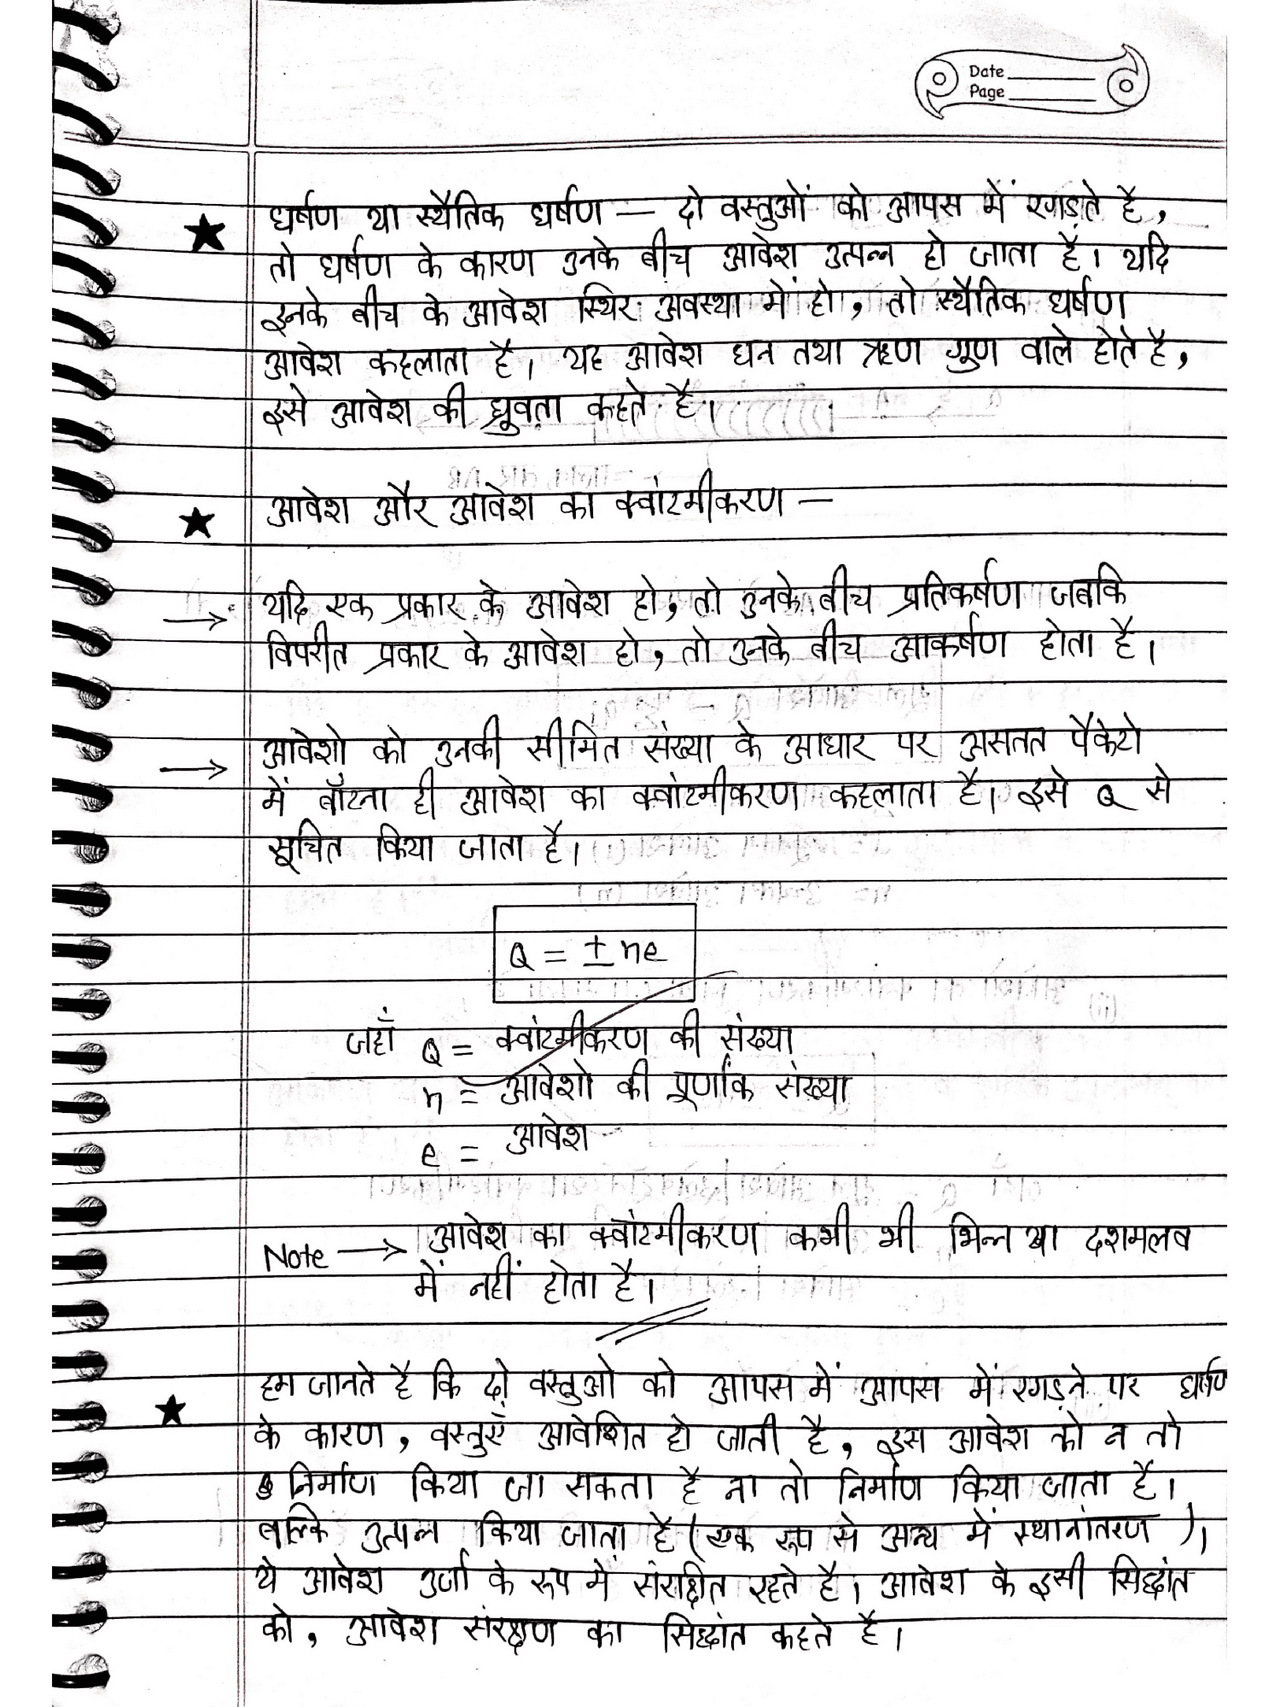 Date
Page
घर्षण या स्थैतिक घर्षण — दो वस्तुओं को आपस में रगड़ते है,
तो घर्षण के कारण उनके बीच आवेश उत्पन्न हो जाता है। यदि
इनके बीच के आवेश स्थिर अवस्था में हो, तो स्थैतिक घर्षण
आवेश कहलाता है। यह आवेश धन तथा ऋण गुण वाले होते है,
इसे आवेश की ध्रुवता कहते है।
आवेश और आवेश का क्वांटमीकरण —
→ यदि एक प्रकार के आवेश हो, तो उनके बीच प्रतिकर्षण जबकि
विपरीत प्रकार के आवेश हो, तो उनके बीच आकर्षण होता है।
→ आवेशो को उनकी सीमित संख्या के आधार पर असतत पैकेटो
में बाँटना ही आवेश का क्वांटमीकरण कहलाता है। इसे Q से
सूचित किया जाता है।
Q = ± ne
जहाँ Q = क्वांटमीकरण की संख्या
n = आवेशो की पूर्णांक संख्या
e = आवेश
Note → आवेश का क्वांटमीकरण कभी भी भिन्न या दशमलव
में नहीं होता है।
हम जानते है कि दो वस्तुओ को आपस में आपस में रगड़ने पर घर्षण
के कारण, वस्तुएँ आवेशित हो जाती है, इस आवेश को न तो
निर्माण किया जा सकता है ना तो निर्माण किया जाता है।
बल्कि उत्पन्न किया जाता है (एक रूप से अन्य में स्थानांतरण)।
ये आवेश उर्जा के रूप में संरक्षित रहते है। आवेश के इसी सिद्धांत
को, आवेश संरक्षण का सिद्धांत कहते है।